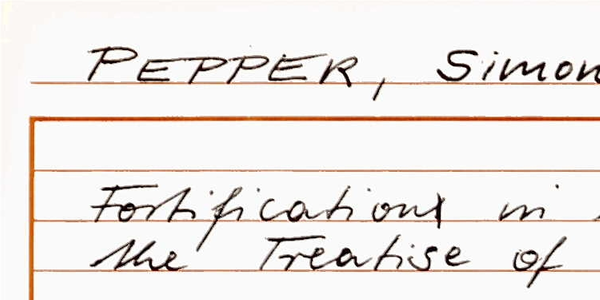 PEPPER, Simon
Fortifications in
the Treatise of